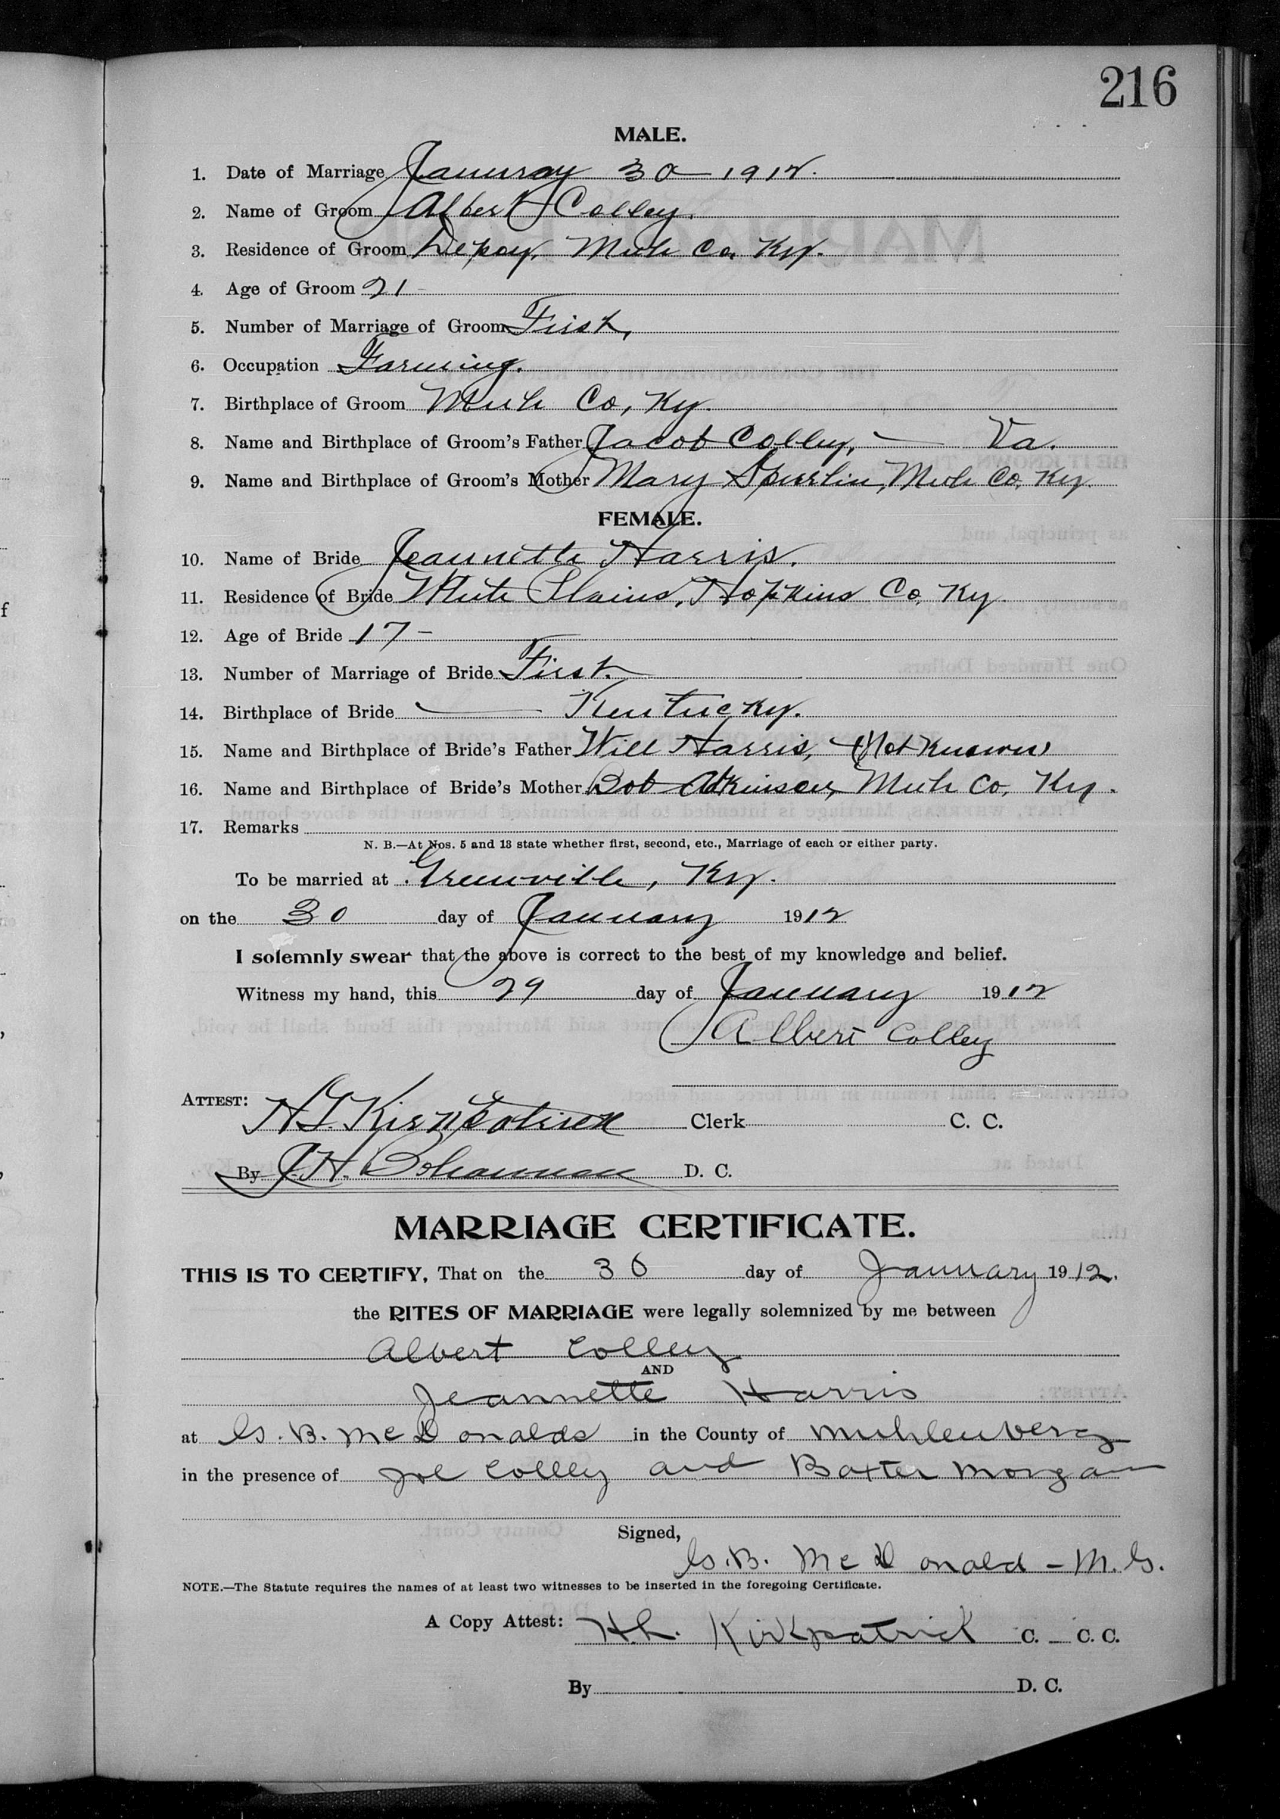 216
MALE.
1. Date of Marriage January 30 - 1912.
2. Name of Groom Albert Colley.
3. Residence of Groom Depoy, Muh Co, Ky.
4. Age of Groom 21 -
5. Number of Marriage of Groom First,
6. Occupation Farming.
7. Birthplace of Groom Muh Co, Ky.
8. Name and Birthplace of Groom's Father Jacob Colley, — Va.
9. Name and Birthplace of Groom's Mother Mary Spurlin, Muh Co, Ky.
FEMALE.
10. Name of Bride Jeannette Harris.
11. Residence of Bride White Plains, Hopkins Co, Ky.
12. Age of Bride 17 -
13. Number of Marriage of Bride First.
14. Birthplace of Bride — Kentucky.
15. Name and Birthplace of Bride's Father Will Harris, (Not Known)
16. Name and Birthplace of Bride's Mother Bob Atkinson, Muh Co, Ky.
17. Remarks
N. B.—At Nos. 5 and 13 state whether first, second, etc., Marriage of each or either party.
To be married at Greenville, Ky.
on the 30 day of January 1912
I solemnly swear that the above is correct to the best of my knowledge and belief.
Witness my hand, this 29 day of January 1912
Albert Colley
ATTEST: Kirkpatrick Clerk C. C.
By J.H. Bohannan D. C.
MARRIAGE CERTIFICATE.
THIS IS TO CERTIFY, That on the 30 day of January 1912.
the RITES OF MARRIAGE were legally solemnized by me between
Albert Colley
AND
Jeannette Harris
at G. B. McDonalds in the County of Muhlenberg
in the presence of Joe Colley and Baxter Morgan
Signed,
G. B. McDonald - M. G.
NOTE.—The Statute requires the names of at least two witnesses to be inserted in the foregoing Certificate.
A Copy Attest: Kirkpatrick C. — C. C.
By D. C.